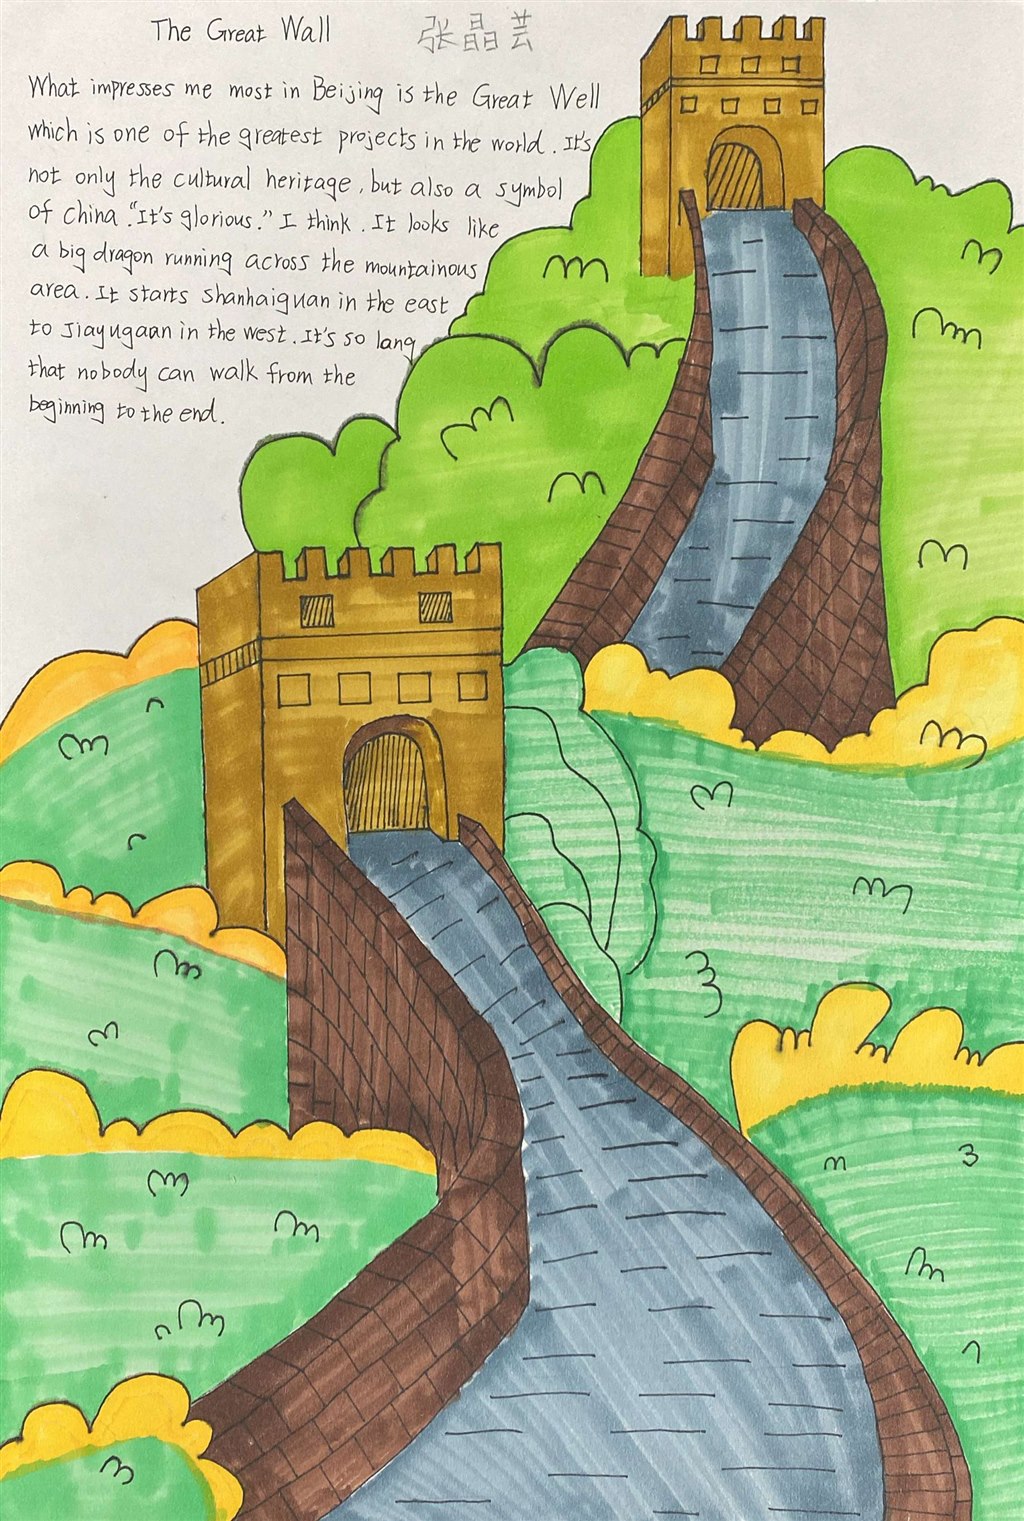 The Great Wall
张晶芸
What impresses me most in Beijing is the Great Well
which is one of the greatest projects in the world. It's
not only the cultural heritage, but also a symbol
of China. "It's glorious." I think. It looks like
a big dragon running across the mountainous
area. It starts Shanhaiguan in the east
to Jiayugaan in the west. It's so lang
that nobody can walk from the
beginning to the end.